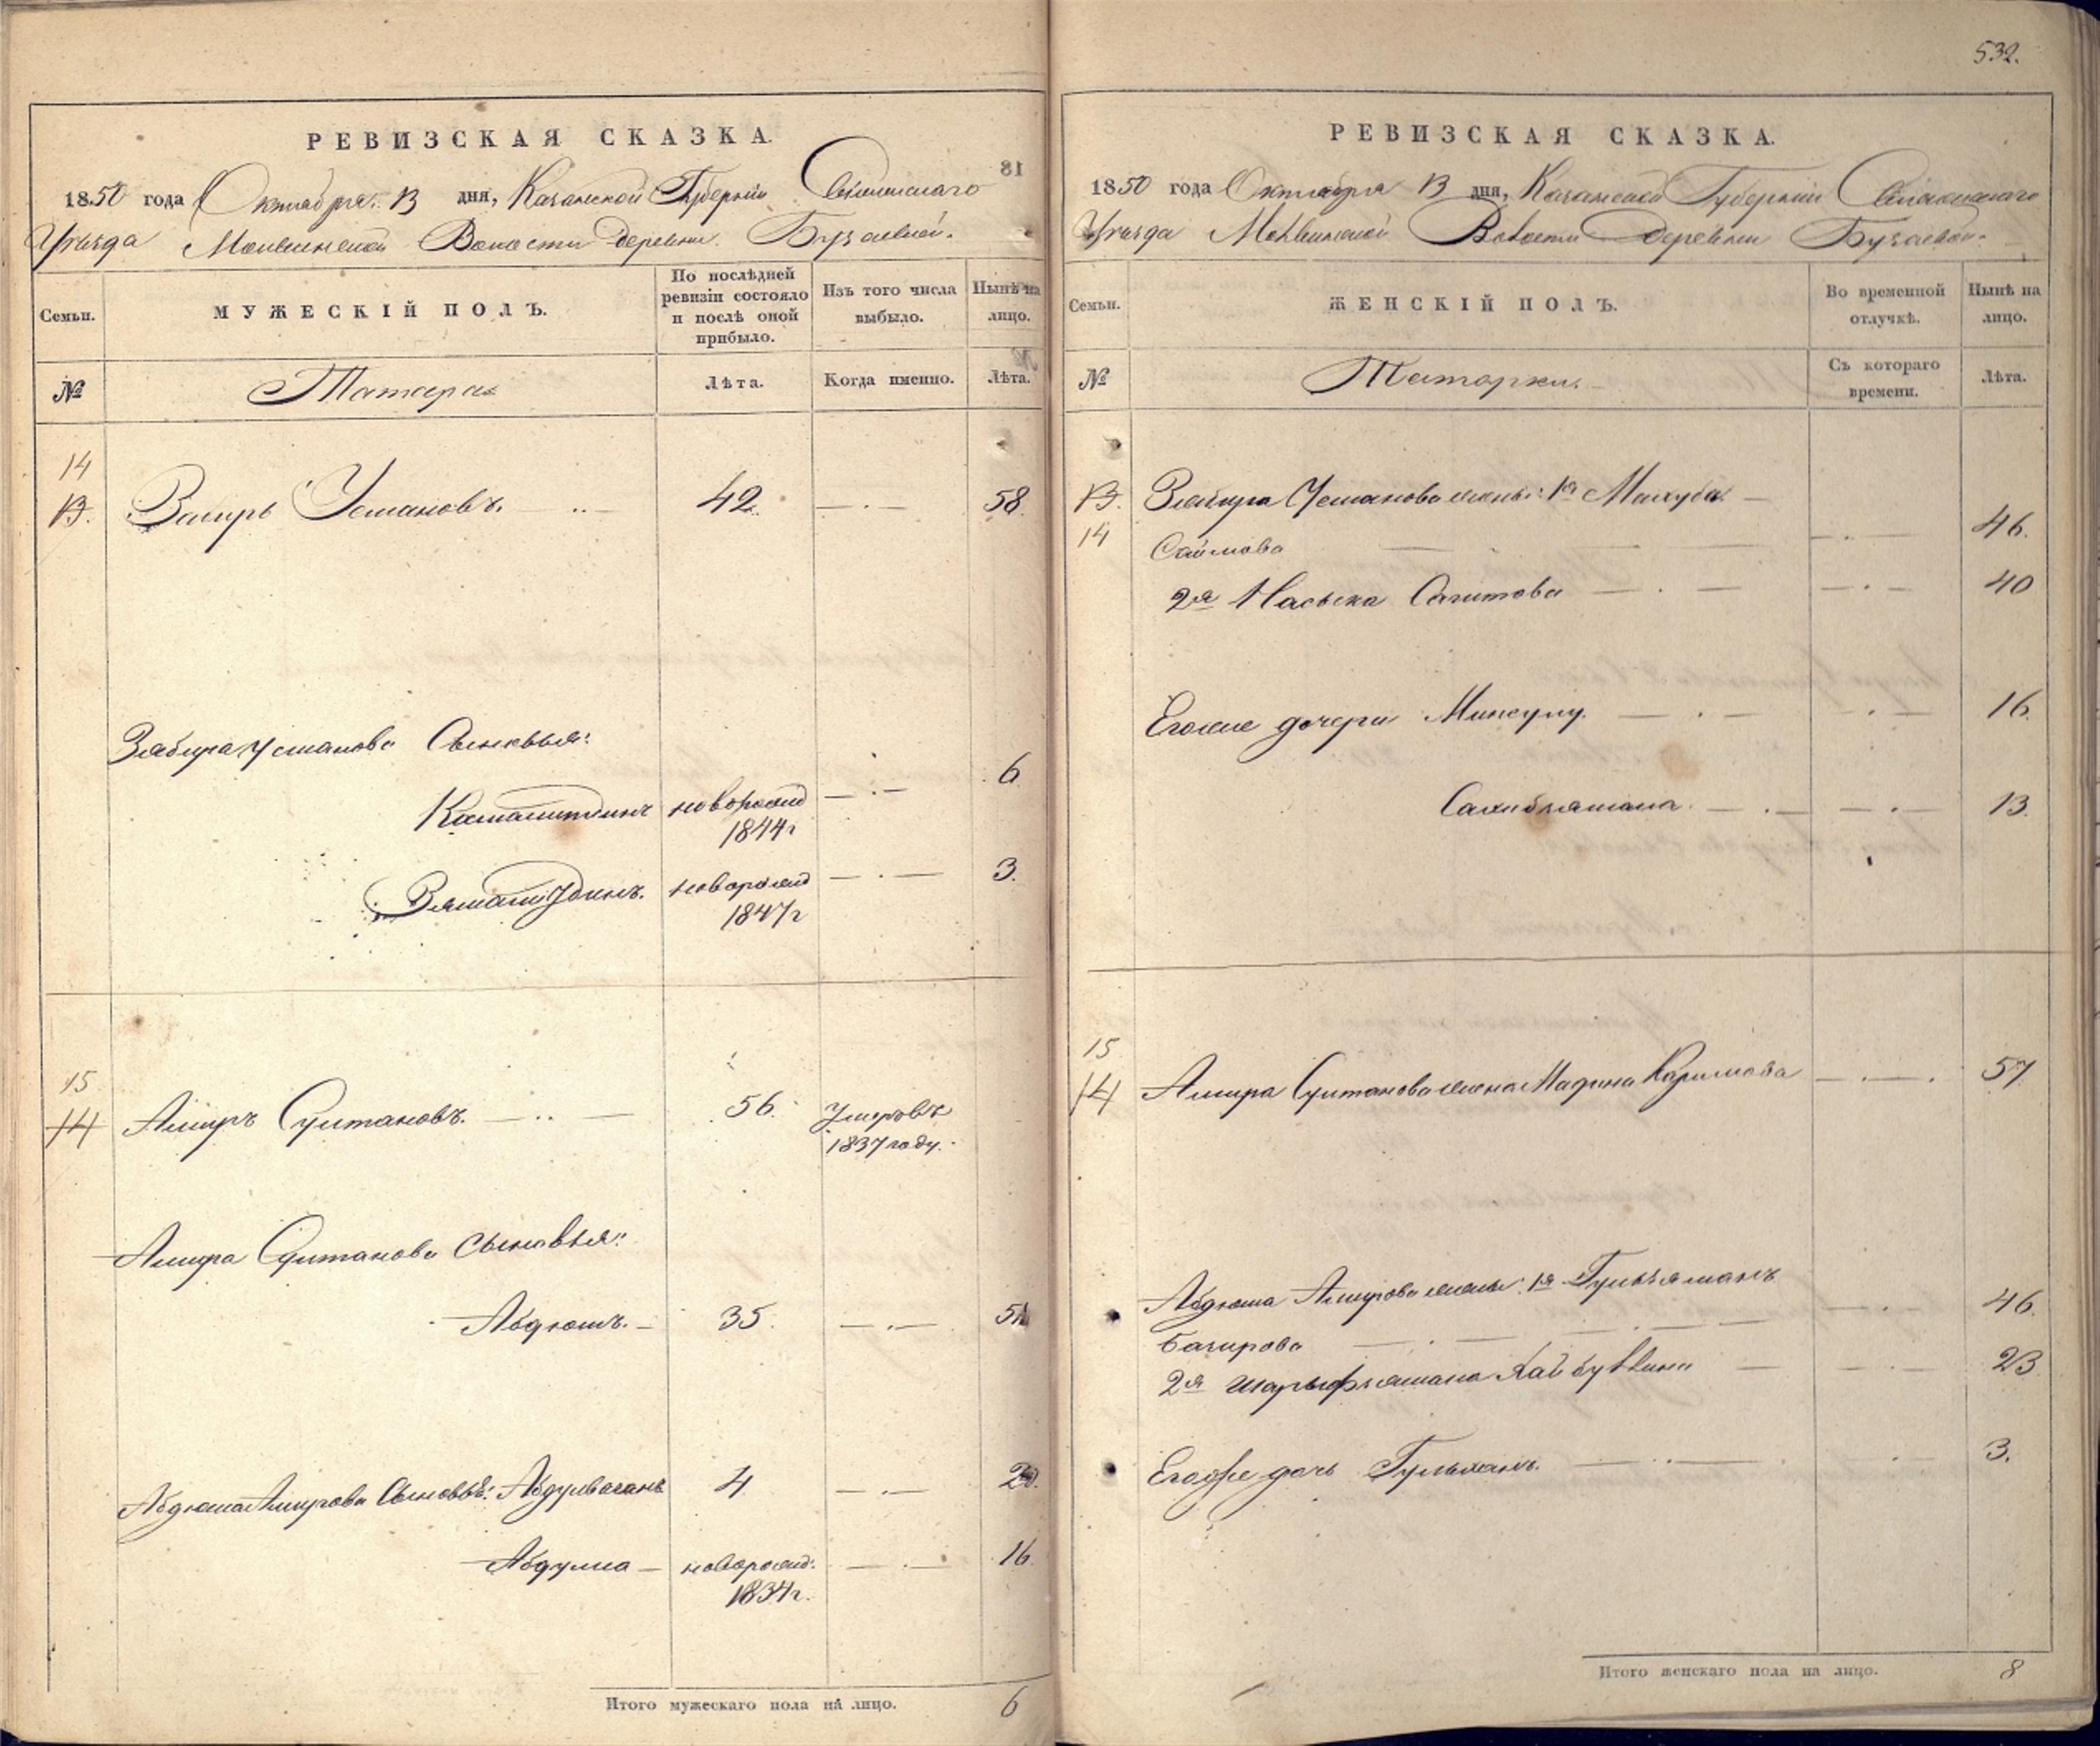 532.
РЕВИЗСКАЯ СКАЗКА.
1850 года Октября 13 дня, Казанской Губерніи Спасскаго
Уѣзда Волости Деревни Бузаевой.
Семьи.
МУЖЕСКІЙ ПОЛЪ.
По послѣдней
ревизіи состояло
и послѣ оной
прибыло.
Изъ того числа
выбыло.
Нынѣ на
лицо.
№
Татара
Лѣта.
Когда именно.
Лѣта.
14
13. Усмановъ. 42 58
Усманова Сыновья:
новорожд 6
1844г
новорожд 3.
1847г
15
14 Амиръ Султановъ. 56. Умеръ въ
1837 году.
Амира Султанова Сыновья:
Абдюшъ. 35. 51
Абдюша Амирова Сыновья: Абдулваганъ 4 20.
Абдулла новорожд: 16
1834г.
Итого мужескаго пола на лицо. 6
РЕВИЗСКАЯ СКАЗКА.
1850 года Октября 13 дня, Казанской Губерніи Спасскаго
Уѣзда Волости Деревни Бузаевой.
Семьи.
ЖЕНСКІЙ ПОЛЪ.
Во временной
отлучкѣ.
Нынѣ на
лицо.
№
Татарки.
Съ котораго
времени.
Лѣта.
13. Усманова жены: 1я Махуба
14 Саимова 46.
2я Сагитова 40
Егоже дочери 16
13.
15
14 Амира Султанова жена Мадина Каримова 57
Абдюша Амирова жены: 1я Гульзяманъ
Багирова 46.
2я 23
Егоже дочь Гульханъ. 3.
Итого женскаго пола на лицо. 8